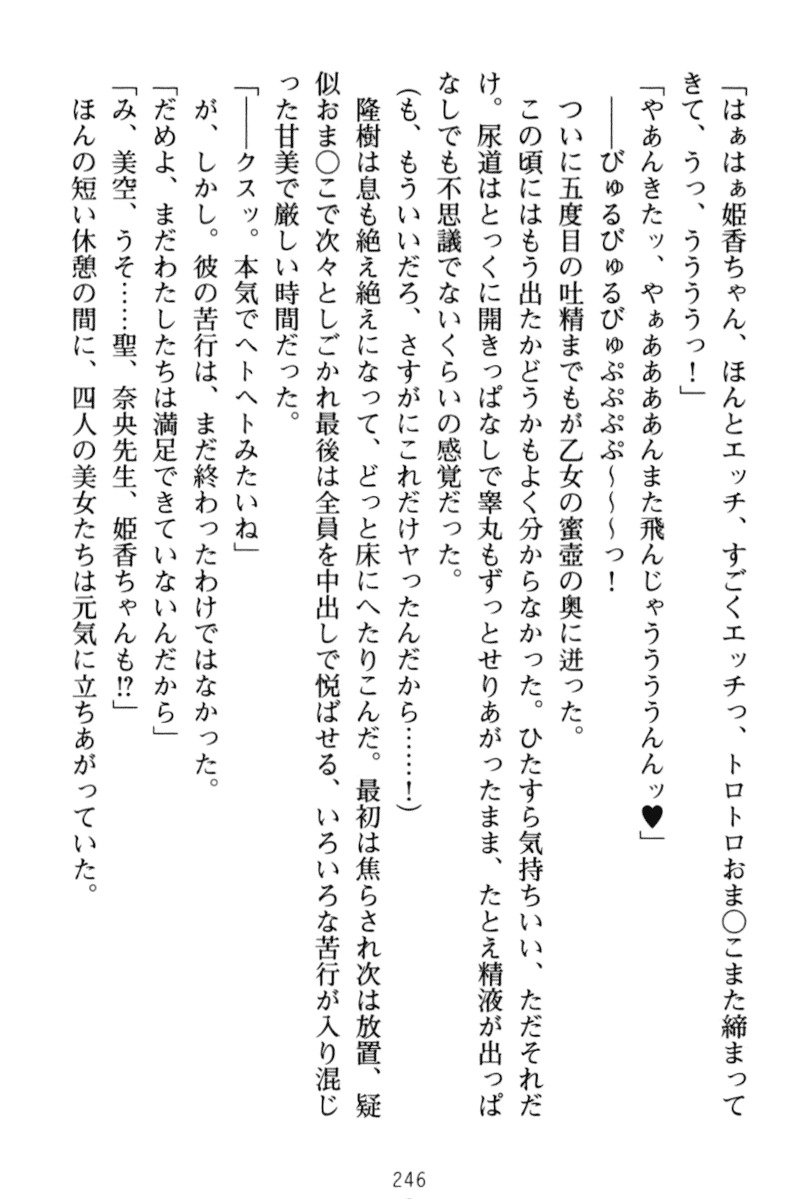 「はぁはぁ姫香ちゃん、ほんとエッチ、すごくエッチっ、トロトロおま〇こまた締まって
きて、うっ、うううっ！」
「やあんきたッ、やぁああああんまた飛んじゃうううんんッ♥」
――びゅるびゅるびゅぷぷぷ〜〜〜っ！
ついに五度目の吐精までもが乙女の蜜壺の奥に迸った。
この頃にはもう出たかどうかもよく分からなかった。ひたすら気持ちいい、ただそれだ
け。尿道はとっくに開きっぱなしで睾丸もずっとせりあがったまま、たとえ精液が出っぱ
なしでも不思議でないくらいの感覚だった。
（も、もういいだろ、さすがにこれだけヤったんだから……！）
隆樹は息も絶え絶えになって、どっと床にへたりこんだ。最初は焦らされ次は放置、疑
似おま〇こで次々としごかれ最後は全員を中出しで悦ばせる、いろいろな苦行が入り混じ
った甘美で厳しい時間だった。
「――クスッ。本気でヘトヘトみたいね」
が、しかし。彼の苦行は、まだ終わったわけではなかった。
「だめよ、まだわたしたちは満足できていないんだから」
「み、美空、うそ……聖、奈央先生、姫香ちゃんも⁉」
ほんの短い休憩の間に、四人の美女たちは元気に立ちあがっていた。
246